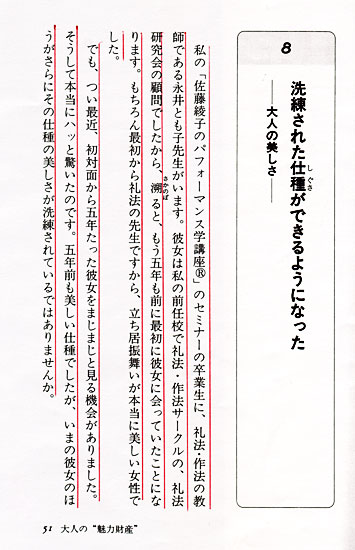 8
洗練された仕種ができるようになった
しぐさ
――大人の美しさ――
私の「佐藤綾子のパフォーマンス学講座®」のセミナーの卒業生に、礼法・作法の教
師である永井とも子先生がいます。彼女は私の前任校で礼法・作法サークルの、礼法
研究会の顧問でしたから、溯ると、もう五年も前に最初に彼女に会っていたことにな
さかのぼ
ります。もちろん最初から礼法の先生ですから、立ち居振舞いが本当に美しい女性で
した。
でも、つい最近、初対面から五年たった彼女をまじまじと見る機会がありました。
そうして本当にハッと驚いたのです。五年前も美しい仕種でしたが、いまの彼女のほ
うがさらにその仕種の美しさが洗練されているではありませんか。
51 大人の“魅力財産”